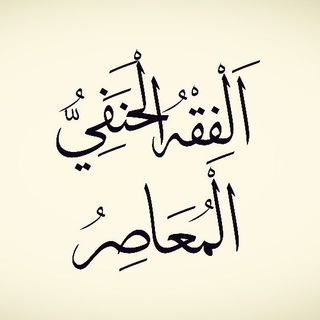 اَلْفِقْهُ الْحَنَفِيُّ
اَلْمُعَاصِرُ